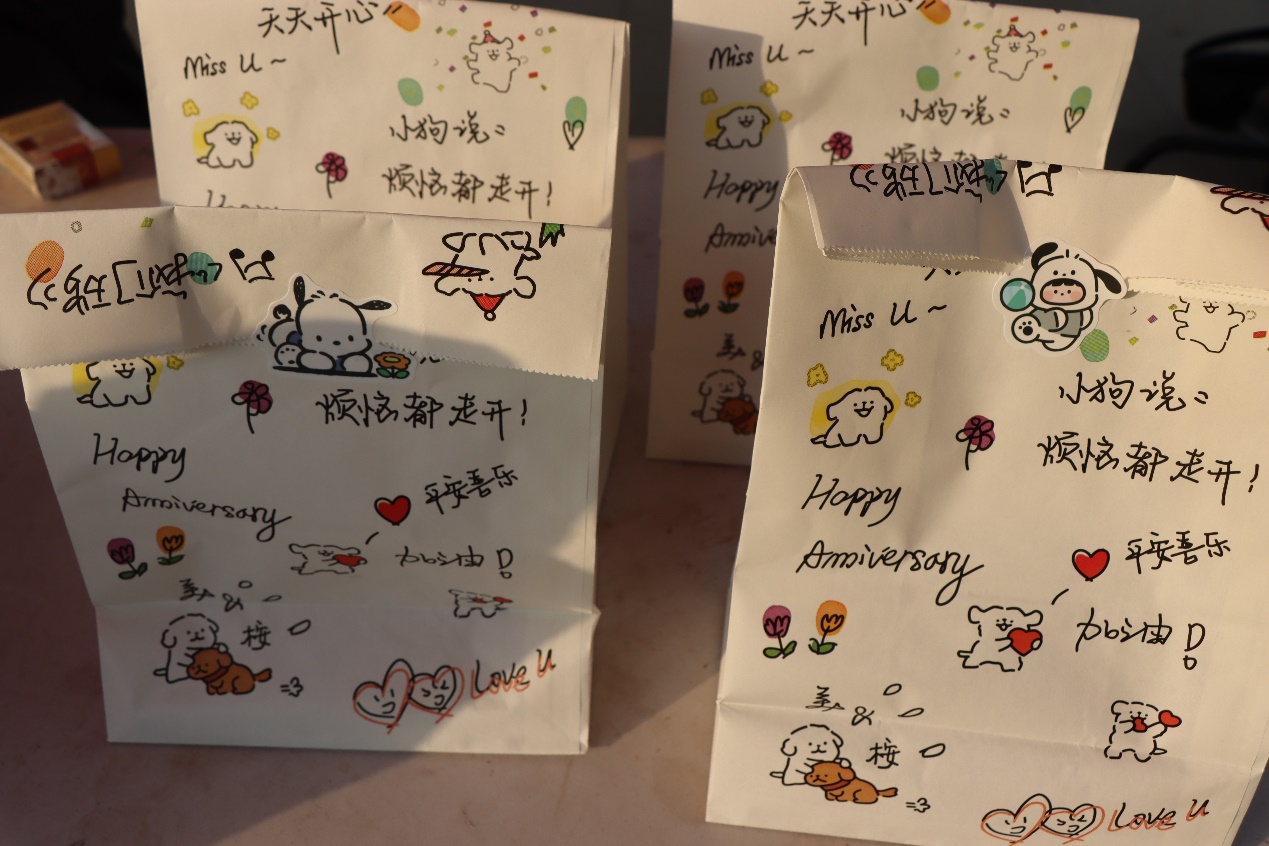 天天开心
Miss U ~
小狗说:
烦恼都走开!
Happy
天天开心
Miss U ~
小狗说:
烦恼都走开!
Happy
Annive
美 &
烦恼都走开!
Happy
Anniversary
平安喜乐
加油
美 &
桉
Love U
Miss U ~
小狗说:
烦恼都走开!
Happy
Anniversary
平安喜乐
加油
美 &
桉
Love U